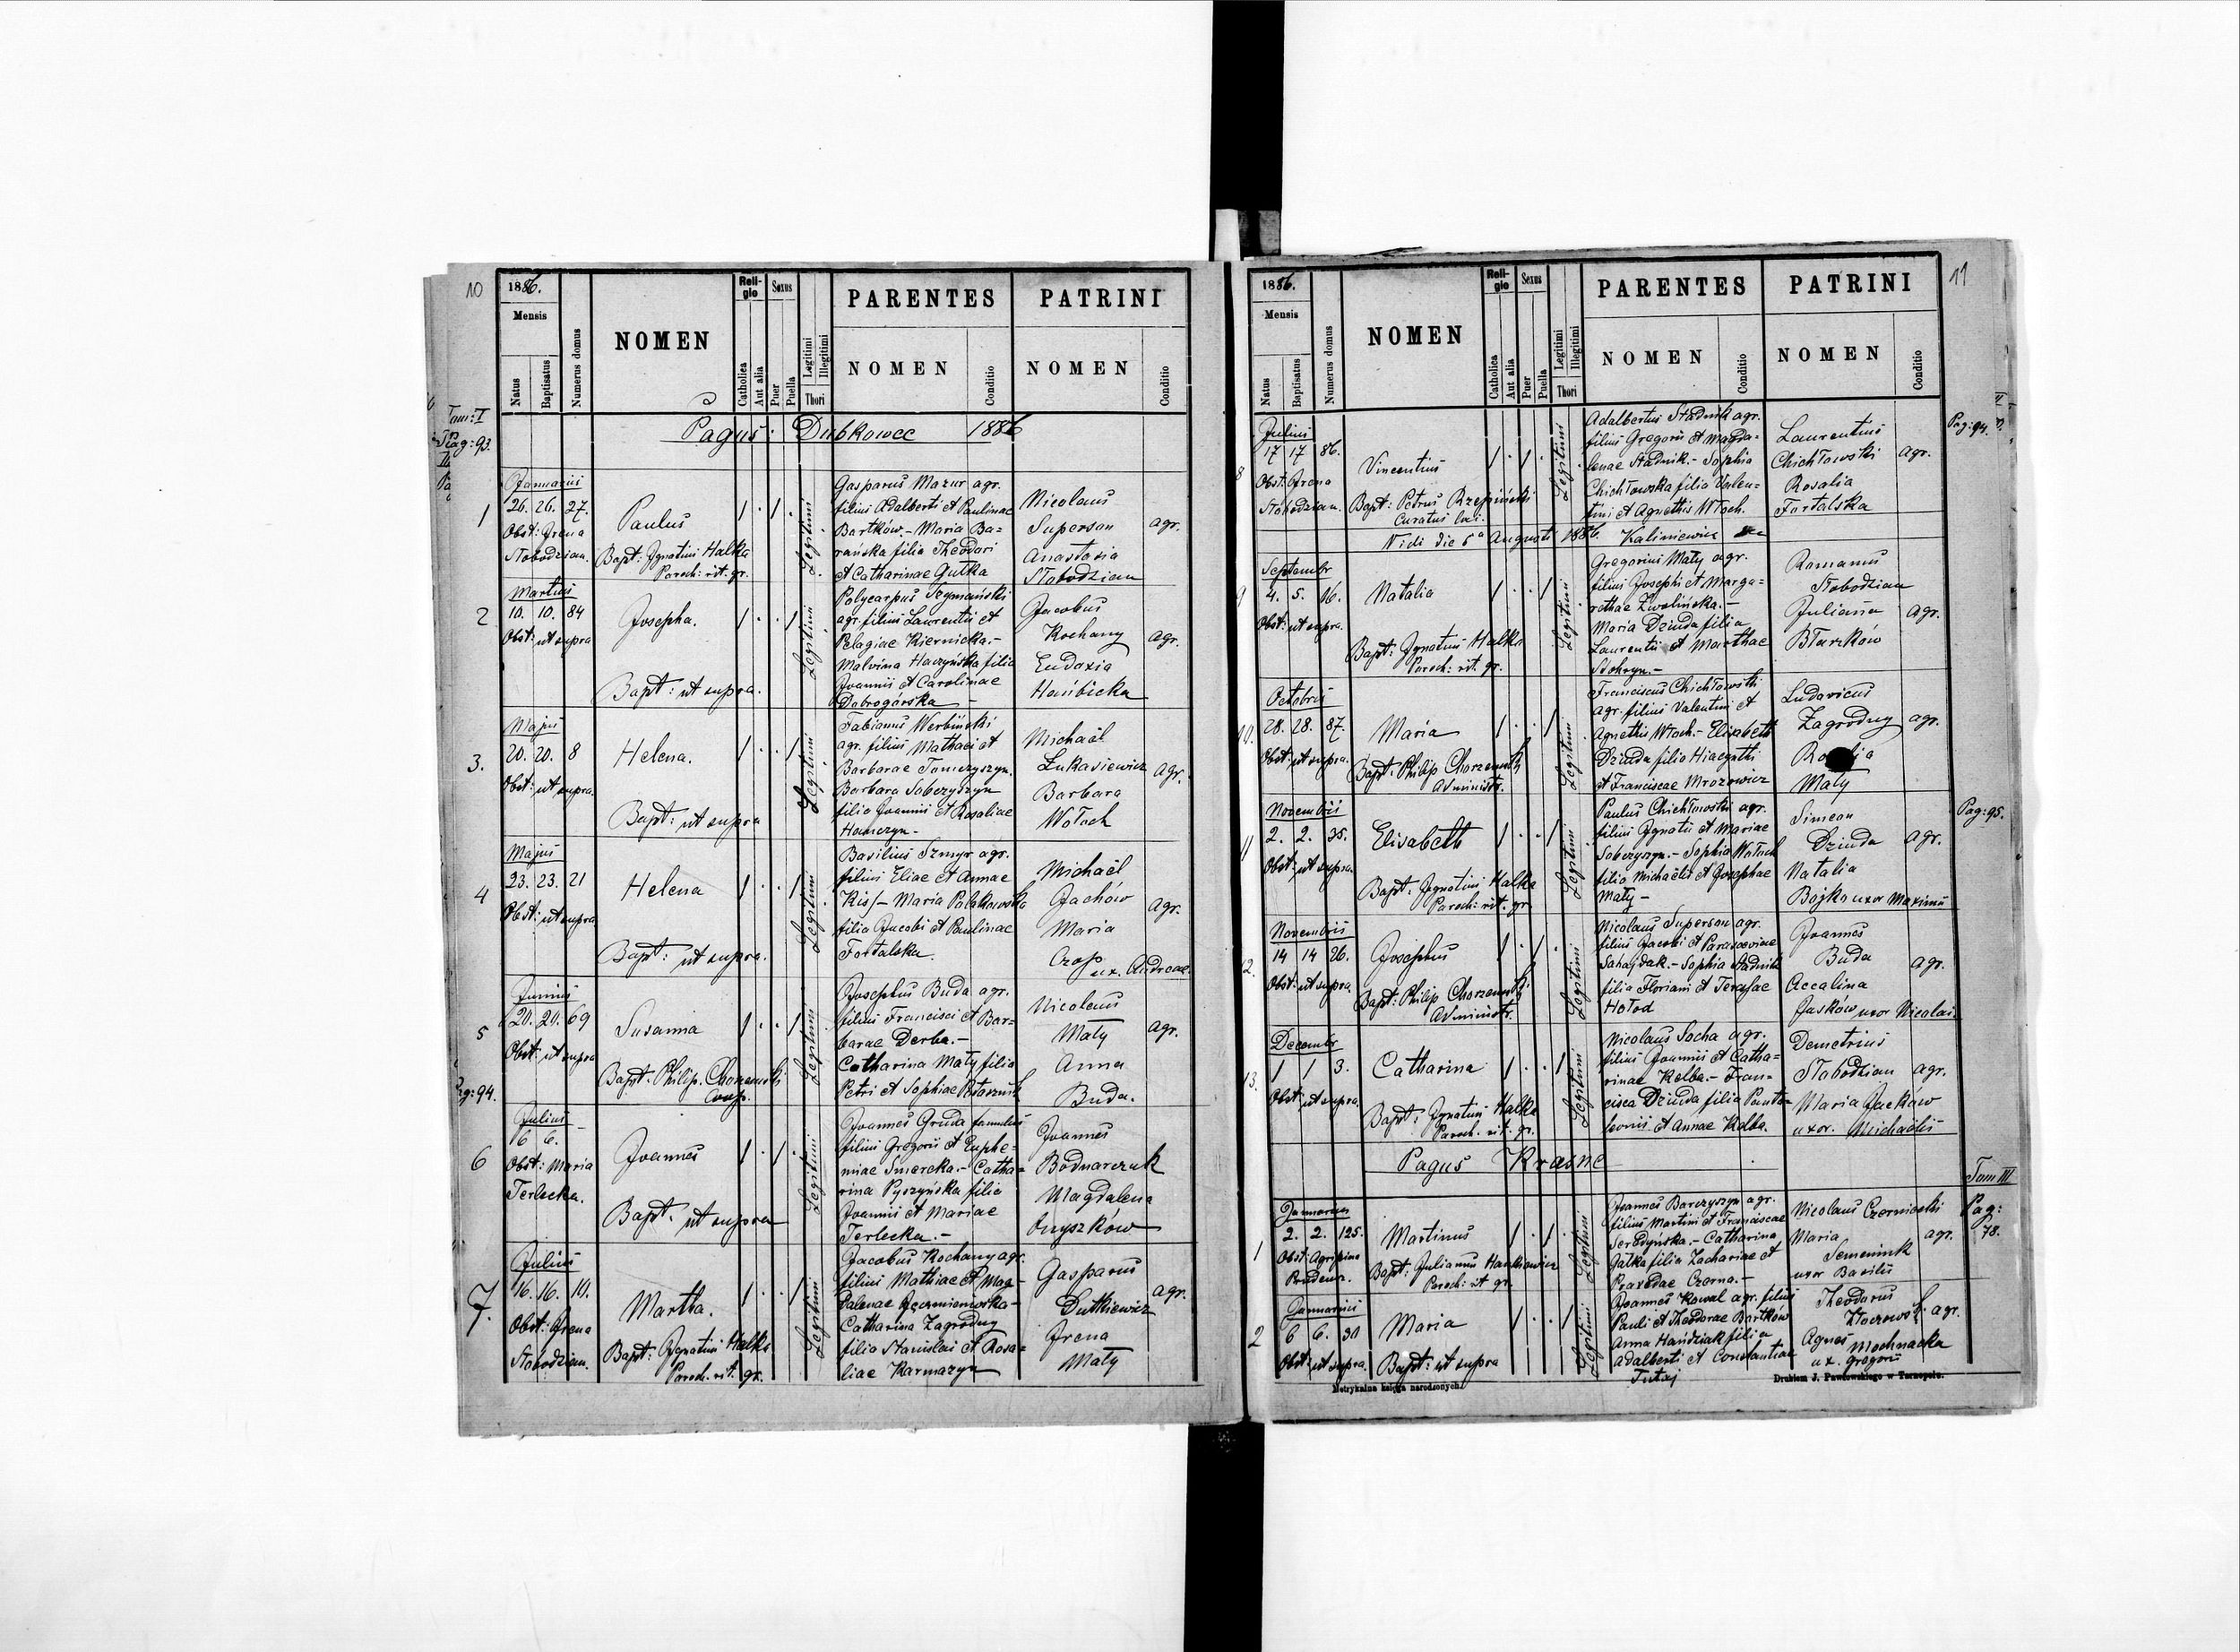 10
1886.
Mensis
Natus
Baptisatus
Numerus domus
NOMEN
Religio
Catholica
Aut alia
Sexus
Puer
Puella
Legitimi
Illegitimi
Thori
PARENTES
NOMEN
Conditio
PATRINI
NOMEN
Conditio
Tom: I
Pag: 93.
Pagus: Dubkowce 1886
1
Januarius
26. 26. 27.
Obst: Irena
Słobodzian.
Paulus
Bapt: Ignatius Halka
Paroch: rit. gr.
Legitimi
Gasparus Mazur agr.
filius Adalberti et Paulinae
Bartków. - Maria Ba-
rańska filia Theodori
et Catharinae Gutka
Nicolaus
Superson
Anastasia
Słobodzian
agr.
2
Martius
10. 10. 84
Obst: ut supra
Josepha.
Bapt: ut supra.
Legitimi
Polycarpus Szymański
agr. filius Laurentii et
Pelagiae Kiernicka. -
Malvina Haczyńska filia
Joannis et Carolinae
Dobrogórska -
Jacobus
Kochany
Eudoxia
Hanibicka
agr.
3.
Majus
20. 20. 8
Obst: ut supra.
Helena.
Bapt: ut supra
Legitimi
Fabianus Werbiński
agr. filius Mathaei et
Barbarae Tomczyszyn.
Barbara Sobczyszyn
filia Joannis et Rosaliae
Hanczyn -
Michaël
Łukasiewicz
Barbara
Wołoch
agr.
4
Majus
23. 23. 21
Obst: ut supra
Helena
Bapt: ut supra.
Legitimi
Basilius Szmyr agr.
filius Eliae et Annae
Kis/- Maria Polakowska
filia Jacobi et Paulinae
Fortalska.
Michaël
Jachów
Maria
Czop
ux. Andreae.
agr.
5
Junius
20. 20. 69
Obst: ut supra
Susanna
Bapt. Philip. Chorzemski
Coop.
Legitimi
Josephus Buda agr.
filius Francisci et Bar-
barae Derba. -
Catharina Mały filia
Petri et Sophiae Potasznik
Nicolaus
Mały
Anna
Buda.
agr.
Pag: 94.
6
Julius
6 6. -
Obst: Maria
Terlecka.
Joannes
Bapt. ut supra
Legitimi
Joannes Gruda famulus
filius Gregorii et Euphe-
miae Smercka. - Catha-
rina Pyszyńska filia
Joannis et Mariae
Terlecka. -
Joannes
Bodnarczuk
Magdalena
Onyszków
7.
Julius
16. 16. 10.
Obst: Irena
Słobodzian.
Martha.
Bapt: Ignatius Halka
Paroch. rit. gr.
Legitimi
Jacobus Kochany agr.
filius Mathiae et Mag-
dalenae Jęczmieniowska -
Catharina Zagrodny
filia Stanislai et Rosa-
liae Karmazyn
Gasparus
Dutkiewicz
Irena
Mały
agr.
11
1886.
Mensis
Natus
Baptisatus
Numerus domus
NOMEN
Religio
Catholica
Aut alia
Sexus
Puer
Puella
Legitimi
Illegitimi
Thori
PARENTES
NOMEN
Conditio
PATRINI
NOMEN
Conditio
Pag: 94.
8
Julius
17 17 86.
Obst: Irena
Słobodzian.
Vincentius
Bapt: Petrus Rzepiński
Curatus loci.
Legitimi
Adalbertus Stadnik agr.
filius Gregorii et Magda-
lenae Stadnik. - Sophia
Chichłowska filia Valen-
tini et Agnethis Włoch.
Laurentius
Chichłowski
Rosalia
Fortalska
agr.
Vidi die 5a Augusti 1886. Kaliniewicz
9
Septembr
4. 5. 16.
Obst: ut supra.
Natalia
Bapt: Ignatius Halka
Paroch: rit. gr.
Legitimi
Gregorius Mały agr.
filius Josephi et Marga-
rethae Zwolińska. -
Maria Dziuda filia
Laurentii et Marthae
Stokryn. -
Romanus
Słobodzian
Juliana
Błarków
agr.
10.
Octobris
28. 28. 87.
Obst: ut supra.
Maria
Bapt: Philip Chorzemski
Administr.
Legitimi
Franciscus Chichłowski
agr. filius Valentini et
Agnethis Włoch. - Elisabeth
Dziuda filia Hiacynthi
et Franciscae Mrozowicz
Ludovicus
Zagrodny
Mały
agr.
Pag: 95.
11
Novembris
2. 2. 35.
Obst: ut supra.
Elisabeth
Bapt. Ignatius Halka
Paroch: rit. gr.
Legitimi
Paulus Chichłowski agr.
filius Ignatii et Mariae
Sobczyszyn. - Sophia Wołoch
filia Michaëlis et Josephae
Mały -
Simeon
Dziuda
Natalia
Bojko uxor Maximi
agr.
12.
Novembris
14 14 26.
Obst: ut supra
Josephus
Bapt: Philip Chorzemski
Administr.
Legitimi
Nicolaus Superson agr.
filius Jacobi et Parasceviae
Sahajdak. - Sophia Stadnik
filia Floriani et Teresae
Hołod
Joannes
Buda
Accalina
Jasków, uxor Nicolai.
agr.
13.
Decembr
1 1 3.
Obst: ut supra.
Catharina
Bapt: Ignatius Halka
Paroch. rit. gr.
Legitimi
Nicolaus Socha agr.
filius Joannis et Catha-
rinae Kelba. - Fran-
cisca Dziuda filia Panta-
leonis et Annae Kelba.
Demetrius
Słobodzian
Maria Jacków
uxor. Michaëlis
agr.
Pagus Krasne
Tom III
Pag:
78.
1
Januarius
2. 2. 125.
Obst: Agripina
Martinus
Bapt: Julianus Hankiewicz
Paroch: rit gr.
Legitimi
Joannes Barczyszyn agr.
filius Martini et Franciscae
Seredyńska. - Catharina
Gałka filia Zachariae et
Praxedae Czorna. -
Nicolaus Czerniecki
Maria
Semeniuk
uxor Basilii
agr.
2
Januarius
6 6. 30
Obst: ut supra.
Maria
Bapt: ut supra
Legitimi
Joannes Kowal agr. filius
Pauli et Theodorae Bartków
Anna Hańdziak filia
Adalberti et Constantiae
Tutaj
Theodorus
Agnes Mochnacka
ux. Gregorii
agr.
Metrykalna księga narodzonych.
Drukiem J. Pawłowskiego w Tarnopolu.